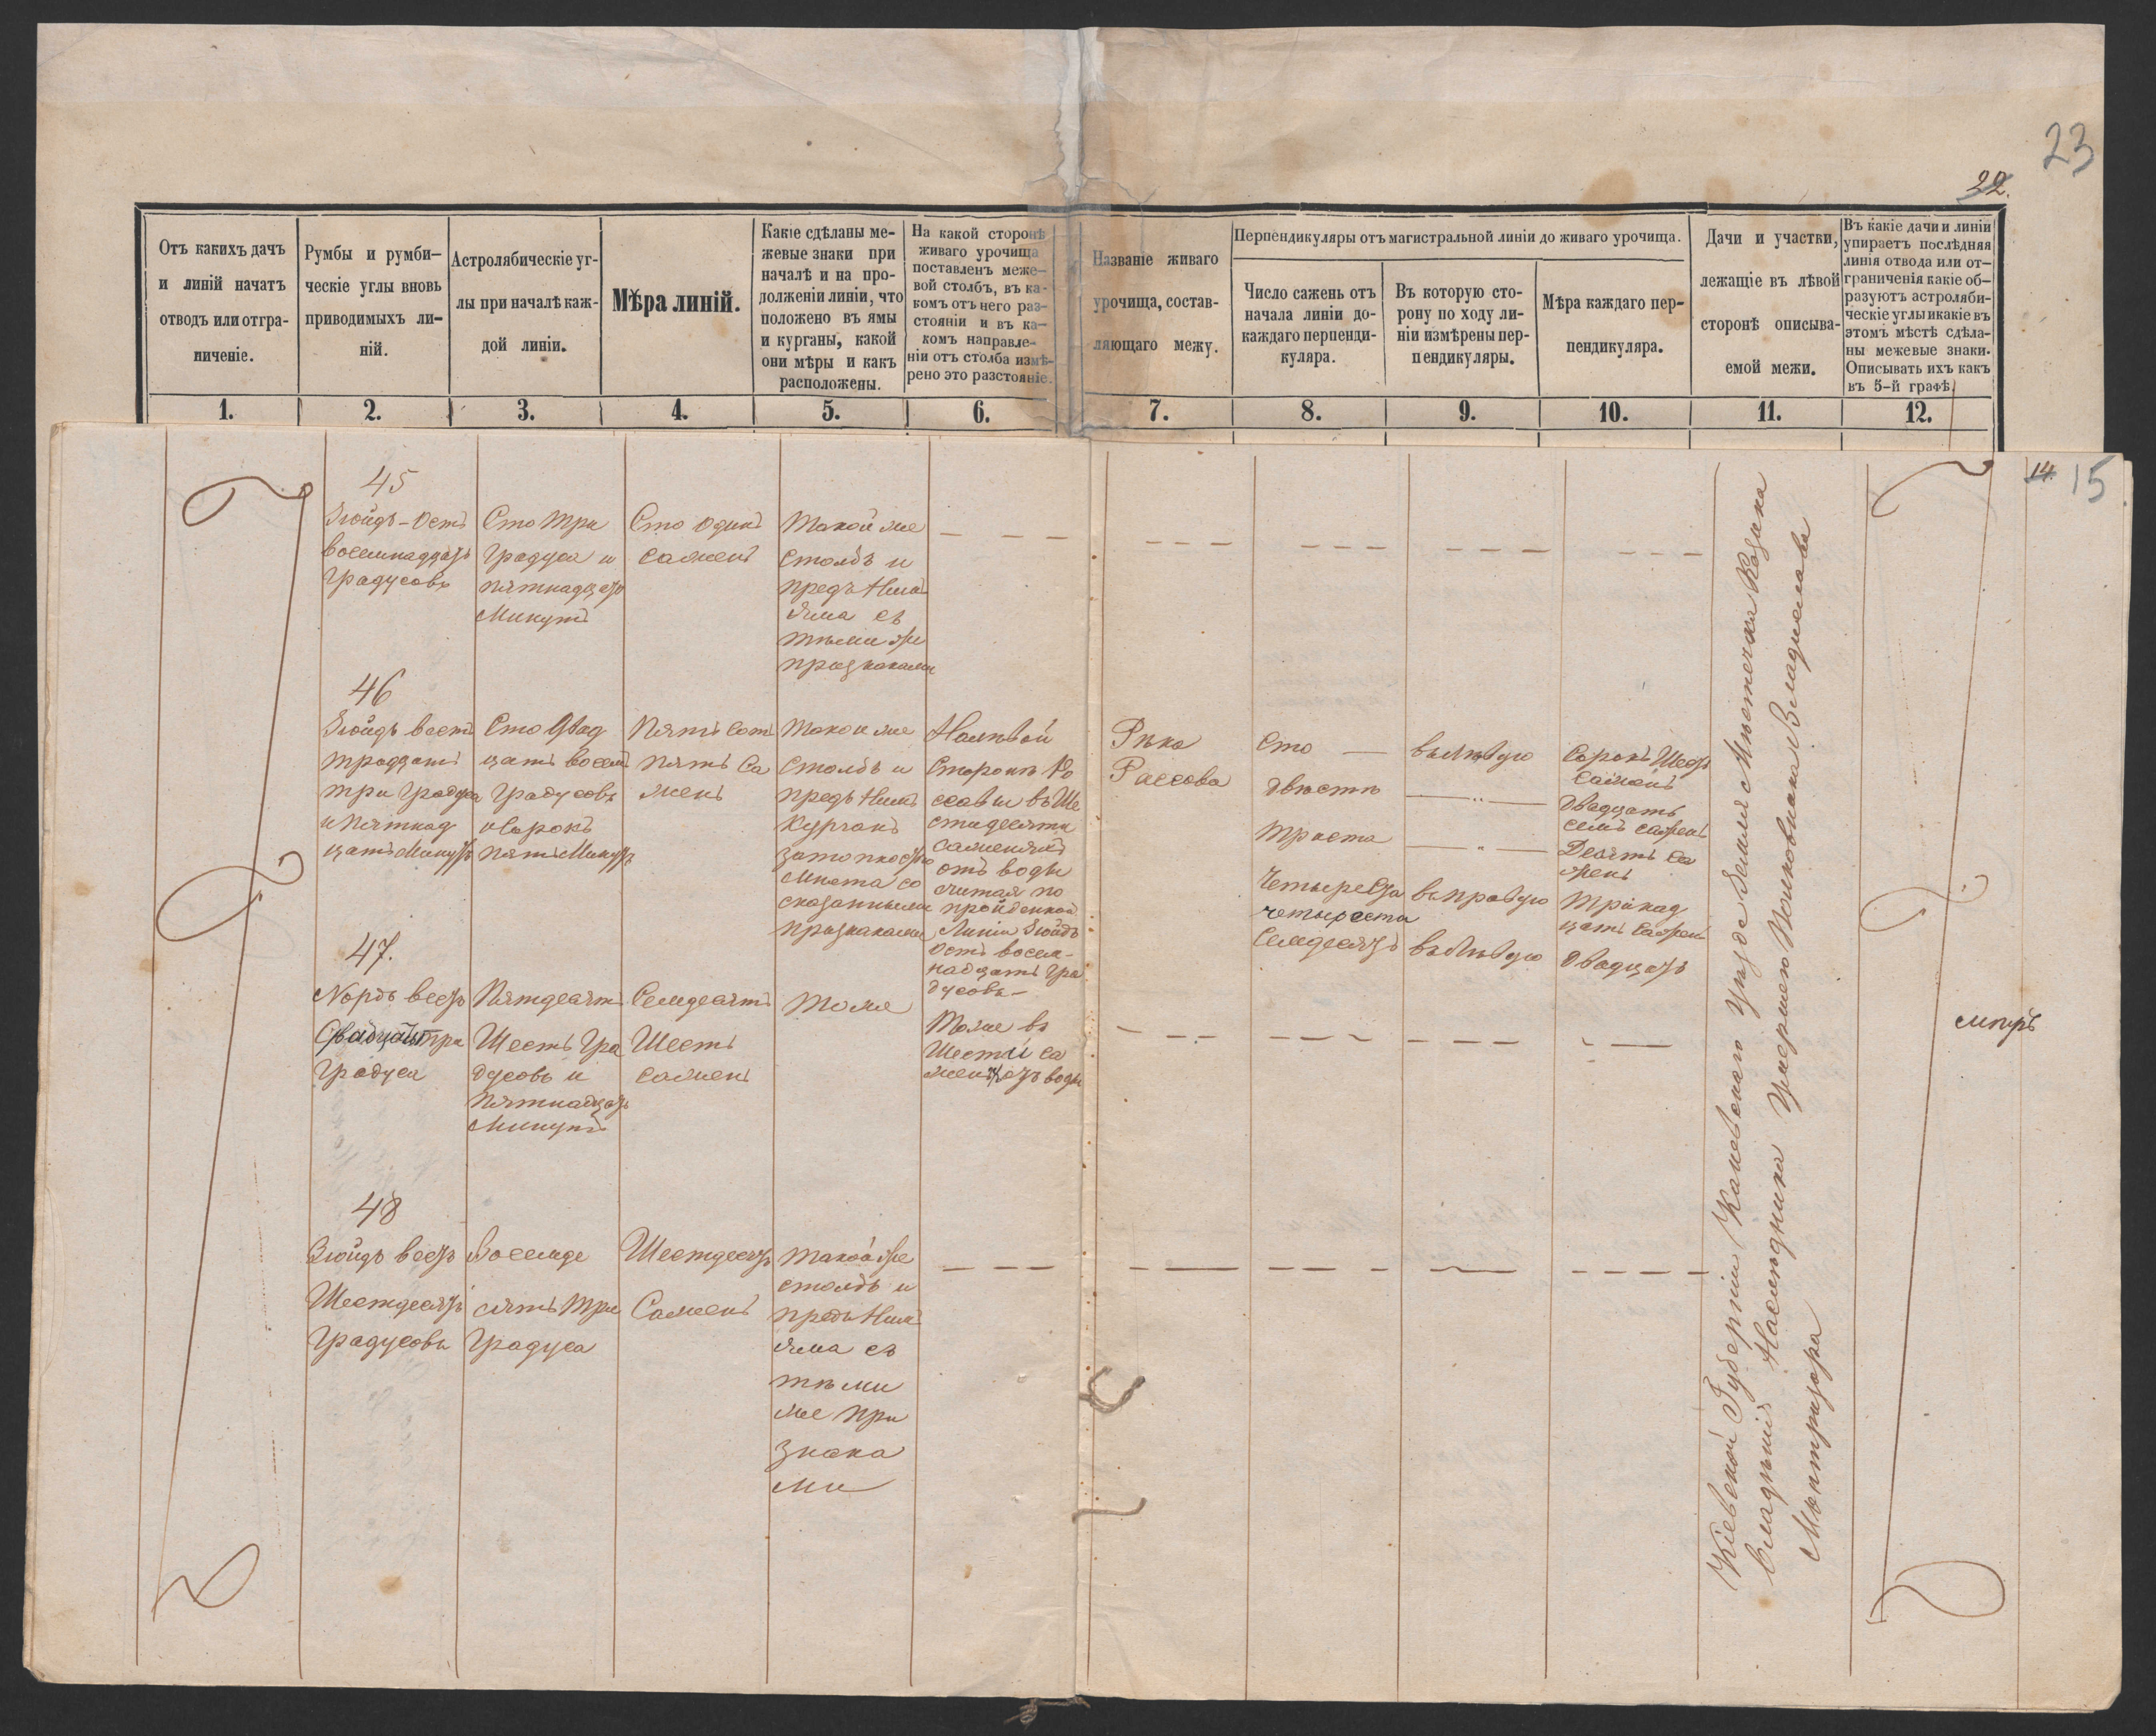 23
22.
Отъ какихъ дачъ
и линій начатъ
отводъ или отгра-
ниченіе.
Румбы и румби-
ческіе углы вновь
приводимыхъ ли-
ній.
Астролябическіе уг-
лы при началѣ каж-
дой линіи.
Мѣра линій.
Какіе сдѣланы ме-
жевые знаки при
началѣ и на про-
долженіи линіи, что
положено въ ямы
и курганы, какой
они мѣры и какъ
расположены.
На какой сторонѣ
живаго урочища
поставленъ меже-
вой столбъ, въ ка-
комъ отъ него раз-
стояніи и въ ка-
комъ направле-
ніи отъ столба измѣ-
рено это разстояніе.
Названіе живаго
урочища, состав-
ляющаго межу.
Перпендикуляры отъ магистральной линіи до живаго урочища.
Число сажень отъ
начала линіи до
каждаго перпенди-
куляра.
Въ которую сто-
рону по ходу ли-
ніи измѣрены пер-
пендикуляры.
Мѣра каждаго пер-
пендикуляра.
Дачи и участки,
лежащіе въ лѣвой
сторонѣ описыва-
емой межи.
Въ какіе дачи и линіи
упираетъ послѣдняя
линія отвода или от-
граниченія какіе об-
разуютъ астроляби-
ческіе углы и какіе въ
этомъ мѣстѣ сдѣла-
ны межевые знаки.
Описывать ихъ какъ
въ 5-й графѣ.
1. 2. 3. 4. 5. 6. 7. 8. 9. 10. 11. 12.
14 15
45
Зюйдъ-Остъ
восемнадцать
градусовъ
Сто три
градуса и
пятнадцать
минутъ
Сто одинъ
сажень
Такой же
столбъ и
предъ нимъ
яма съ
тѣми же
признаками
46
Зюйдъ вестъ
тридцать
три градуса
и пятнад
цать минутъ
Сто двад
цать восемь
градусовъ
и сорокъ
пять минутъ
Пять сотъ
пять са
жень
Такой же
столбъ и
предъ нимъ
курганъ
за топкостью
мѣста со
сказанными
признаками
На лѣвой
сторонѣ Ро
ссавы въ ше
стидесяти
саженяхъ
отъ воды
считая по
пройденной
линіи Зюйдъ
Остъ восем-
надцать гра
дусовъ
Рѣка
Рассова
Сто
двѣсти
триста
Четыреста
четыреста
семдесятъ
въ лѣвую
— " —
— " —
въ правую
въ лѣвую
Сорокъ шесть
сажень
двадцать
семь сажень
Десять са
жень
Тринад
цать сажень
двадцать
47.
Nордъ вестъ
двадцать три
градуса
Пятдесятъ
шесть гра
дусовъ и
пятнадцать
минутъ
Семдесятъ
шесть
сажень
тоже
Тоже въ
шести са
женяхъ отъ воды
48
Зюйдъ вестъ
шестдесятъ
градусовъ
Восемде
сятъ три
градуса
Шестдесятъ
сажень
Такой же
столбъ и
предъ нимъ
яма съ
тѣми
же при
знака
ми
Кіевской Губерніи Каневскаго Уѣзда Земля Мѣстечка Козина
владѣнія Наслѣдника Умершаго Полковника Владислава